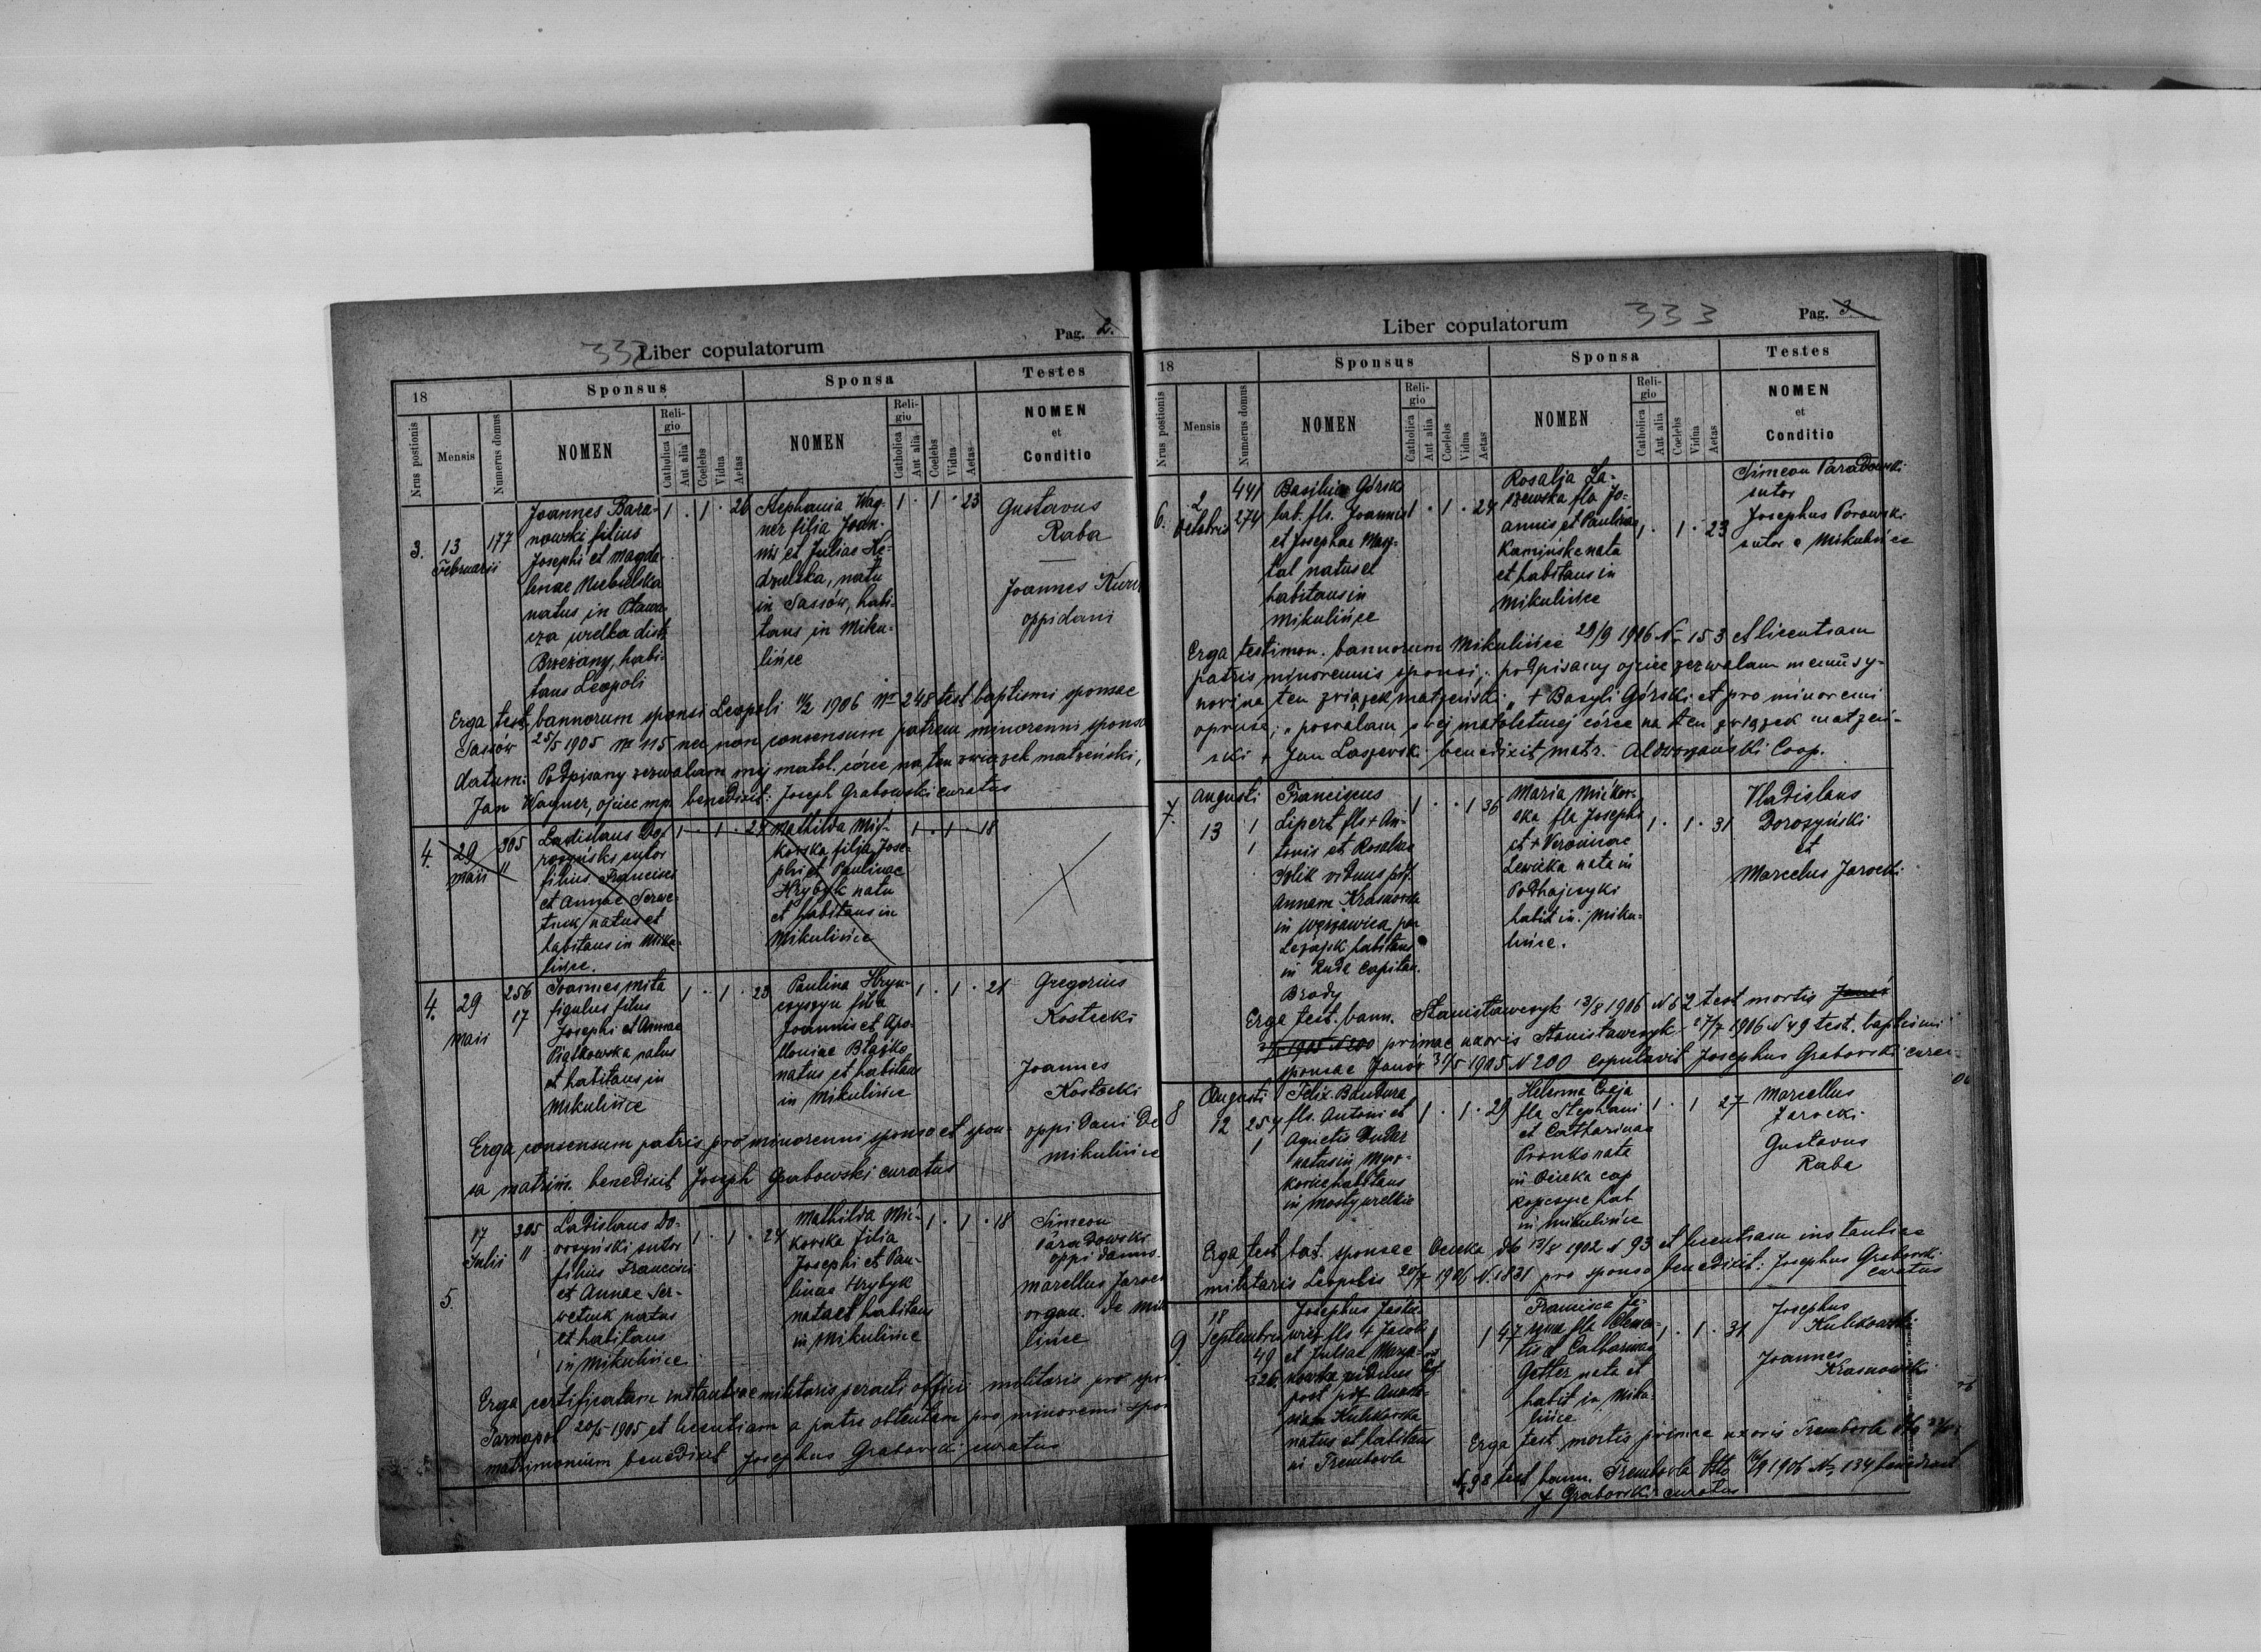 332
Liber copulatorum
Pag. 2.
18
Sponsus
Sponsa
Testes
Nrus postionis
Mensis
Numerus domus
NOMEN
Religio
Catholica
Aut alia
Coelebs
Vidua
Aetas
NOMEN
Religio
Catholica
Aut alia
Coelebs
Vidua
Aetas
NOMEN
et
Conditio
3.
13
Februarii
177
Joannes Bara-
nowski filius
Josephi et Magda-
lenae
natus in
wielka dist.
Brzeżany, habi-
tans Leopoli
1 . 1 . 26
Stephania Wag-
ner filia Joan-
nis et Juliae
nata
in Sassów, habi-
tans in Miku-
lińce
1 . 1 . 23
Gustavus
Raba
Joannes
oppidani
Erga test. bannorum sponsi Leopoli 11/2 1906 Nr 248 test. baptismi sponsae
Sassów 25/5 1905 Nr 115 nec non consensum patrem minorenni sponsae
datum: Podpisany zezwalam mej małol. córce na ten związek małżeński,
Jan Wagner, ojciec mp. benedixit: Joseph Grabowski curatus
4.
29
Maii
305
11
Ladislaus Do-
roszyński sutor
filius Francisci
et Annae Serwe-
tnik natus et
habitans in Miku-
lińce.
1 1 . 24
Mathilda Mić-
kowska filia Jose-
phi et Paulinae
Hrybyk nata
et habitans in
Mikulińce
1 . 1 . 18
4.
29
Maii
256
17
Joannes Mita
figulus filius
Josephi et Annae
Piątkowska natus
et habitans in
Mikulińce
1 . 1 . 23
Paulina Hryn-
czyszyn filia
Joannis et Apo-
lloniae Błażko
natus et habitans
in Mikulińce
1 . 1 . 21
Gregorius
Kostecki
Joannes
Kostecki
oppidani de
Mikulińce
Erga consensum patris pro minorenni sponso et spon-
sa matrim. benedixit Joseph Grabowski curatus
5.
17
Julii
305
11
Ladislaus Do-
roszyński sutor
filius Francisci
et Annae Ser-
wetnik natus
et habitans
in Mikulińce
1 . 1 . 24
Mathilda Mic-
kowska filia
Josephi et Pau-
linae Hrybyk
nata et habitans
in Mikulińce
1 . 1 . 18
Simeon
Paradowski
oppidanus
Marcellus
organ. de Miku
lińce
Erga certificatam instantiae militaris peracti offici militaris pro
Tarnopol 20/5 1905 et licentiam a patre obtentam pro minorenni
matrimonium benedixit Josephus Grabowski curatus
333
Liber copulatorum
Pag. 3.
18
Sponsus
Sponsa
Testes
Nrus postionis
Mensis
Numerus domus
NOMEN
Religio
Catholica
Aut alia
Coelebs
Vidua
Aetas
NOMEN
Religio
Catholica
Aut alia
Coelebs
Vidua
Aetas
NOMEN
et
Conditio
6.
2
Octobris
441
274
Basilius Górski
fls. Joannis
et Josephae
natus et
habitans in
Mikulińce
1 . 1 . 24
Rosalja La-
szewska fla Jo-
annis et Paulinae
Kamińska nata
et habitans in
Mikulińce
1 . 1 . 23
Simeon Paradowski
sutor
Josephus Porowski
sutor e Mikulińce
Erga testimon. bannorum Mikulińce 29/9 1906 N 153 et licentiam
patris minorennis sponsi; podpisany ojciec zezwalam memu sy-
nowi na ten związek małżeński + Bazyli Górski et pro minorenni
sponsae; pozwalam swej małoletniej córce na ten związek małżeń-
ski + Jan Laszewski benedixit matr. Coop.
7.
Augusti
13
1
1
Franciscus
Lipert fls + An-
tonis et Rosaliae
Solik viduus post
Annam
in
Leżajsk habitans
in Rudc Capitan.
Brody
1 . . 1 36
Maria Mićkow-
ska fla Josephi
et + Veronicae
Lewicka nata in
Podhajczyki
habit in. Miku-
lińce.
1 . 1 . 31
Vladislaus
Doroszyński
et
Marcelus Jarocki
Erga test. bann. Stanisławczyk 13/8 1906 N 62 test mortis Janów
1905 N 200 primae uxoris Stanisławczyk 27/7 1906 N 49 test. baptismi
sponsae Janów 31/5 1905 N 200 copulavit Josephus Grabowski
8
Augusti
12
254
1
Felix Bandura
fls. Antoni et
Agnetis Duder
natus in
habitans
in Mosty wielkie
1 . 1 . 29
Helenna
fla Stephani
et Catharinae
Pronko nata
in Ocieka cap
Ropczyce hab
in Mikulińce
1 . 1 27
Marcellus
Jarocki
Gustavus
Raba
Erga test bat. sponsae Ocieka dto 13/8 1902 N 93 et licentiam instantiae
militaris Leopolis 20/7 1906 N. 1831 pro sponso benedixit: Josephus Grabowski
curatus
9.
18
Septembris
49
326.
Josephus
fls + Jacobi
et Juliae
viduus
post
Kulikowska
natus et habitans
in Trembovla
1 47
Francisca
fla Clemen-
tis et Catharinae
Getter nata et
habit in Miku-
lińce
1 . 1 . 31
Josephus
Kulikowski
Joannes
Krasnowski
Erga test mortis primae uxoris Trembovla dto
N 98 test bann. Trembovla dto 1906 No 134 benedixit
J Grabowski curatus